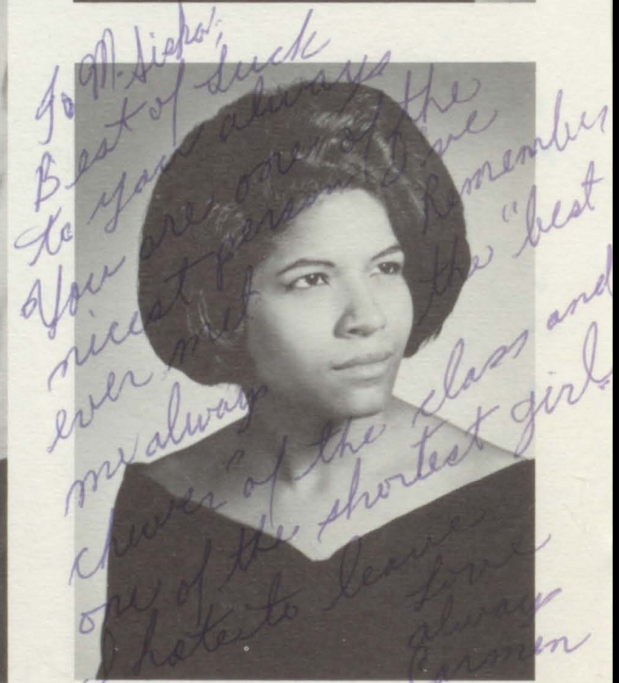 To M. Siska,
Best of Luck
to you always
You are one of the
nicest person I've
ever met Remember
me always the "best
chewer" of the class and
one of the shortest girl.
I hate to leave
Love
always
Carmen